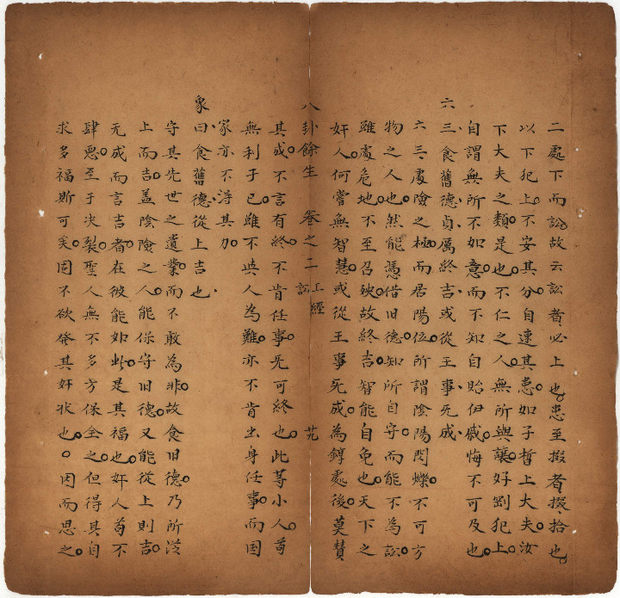 二處下而訟故云訟者必上也患至掇者掇拾也
以下犯上不安其分自速其患如子晳上大夫汝
下大夫之類是也不仁之人無所與讓好剛犯上
自謂無所不如意而不知自貽伊慼悔不可及也
六三食舊德貞厲終吉或從王事无成
六三處險之極而居陽位所謂陰陽閃爍不可方
物之人也然能憑借旧德知所自守而能不為訟
雖處危地不至召殃故終吉智能自免也天下之
奸人何嘗無智慧或從王事无成為錞處後莫賛
八卦餘生 卷之二 上經 訟
其成不言有終不肯任事无可終也此等小人苟
無利于己雖不與人為難亦不肯出身任事而國
家亦不淂其力
象曰食舊德從上吉也
守其先世之遺業而不敢為非故食旧德乃所從
上而吉蓋陰險之人能保守旧德又能從上則吉
无成而言吉者在彼能如此是其福也奸人苟不
肆惡至于决裂聖人無不多方保全之但得其自
求多福斯可矣固不欲發其奸狀也○因而思之